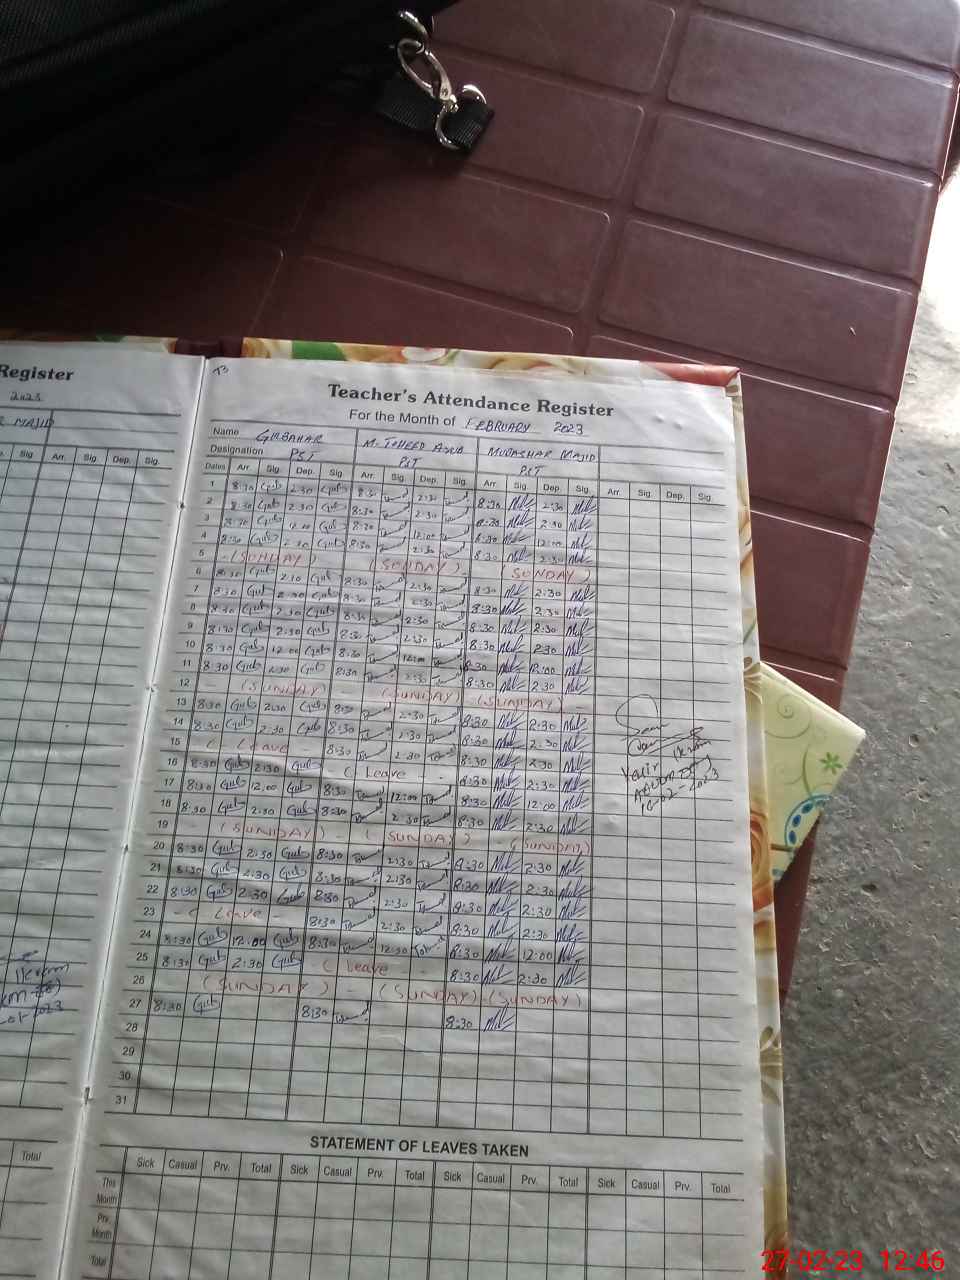 Register
2023
MAJID
Arr. Sig. Dep. Sig.
Total
T3
Teacher's Attendance Register
For the Month of FEBRUARY 2023
Name GULBAHAR M. TOHEED AYUB MUBASHAR MAJID
Designation PST PST PST
Dates Arr. Sig. Dep. Sig. Arr. Sig. Dep. Sig. Arr. Sig. Dep. Sig. Arr. Sig. Dep. Sig.
1 8:30 Gul 2:30 Gul 8:30 2:30 8:30 2:30
2 8:30 Gul 2:30 Gul 8:30 2:30 8:30 2:30
3 8:30 Gul 12:00 Gul 8:30 12:00 8:30 12:00
4 8:30 Gul 2:30 Gul 8:30 2:30 8:30 2:30
5 (SUNDAY) (SUNDAY) (SUNDAY)
6 8:30 Gul 2:30 Gul 8:30 2:30 8:30 2:30
7 8:30 Gul 2:30 Gul 8:30 2:30 8:30 2:30
8 8:30 Gul 2:30 Gul 8:30 2:30 8:30 2:30
9 8:30 Gul 2:30 Gul 8:30 2:30 8:30 2:30
10 8:30 Gul 12:00 Gul 8:30 12:00 8:30 12:00
11 8:30 Gul 2:30 Gul 8:30 2:30 8:30 2:30
12 - (SUNDAY) - (SUNDAY) (SUNDAY) -
13 8:30 Gul 2:30 Gul 8:30 2:30 8:30 2:30
14 8:30 Gul 2:30 Gul 8:30 2:30 8:30 2:30
15 - ( Leave - 8:30 2:30 8:30 2:30
16 8:30 Gul 2:30 Gul ( Leave - 8:30 2:30
17 8:30 Gul 12:00 Gul 8:30 12:00 8:30 12:00
18 8:30 Gul 2:30 Gul 8:30 2:30 8:30 2:30
19 - (SUNDAY) - (SUNDAY) - (SUNDAY)
20 8:30 Gul 2:30 Gul 8:30 2:30 8:30 2:30
21 8:30 Gul 2:30 Gul 8:30 2:30 8:30 2:30
22 8:30 Gul 2:30 Gul 8:30 2:30 8:30 2:30
23 - ( Leave - 8:30 2:30 8:30 2:30
24 8:30 Gul 12:00 Gul 8:30 12:00 8:30 12:00
25 8:30 Gul 2:30 Gul - ( Leave - 8:30 2:30
26 (SUNDAY) - (SUNDAY) - (SUNDAY)
27 8:30 Gul 8:30 8:30
28
29
30
31
Yasir Ikram
10-02-2023
STATEMENT OF LEAVES TAKEN
Sick Casual Prv. Total Sick Casual Prv. Total Sick Casual Prv. Total Sick Casual Prv. Total
This Month
Prv. Month
Total
27-02-23 12:46